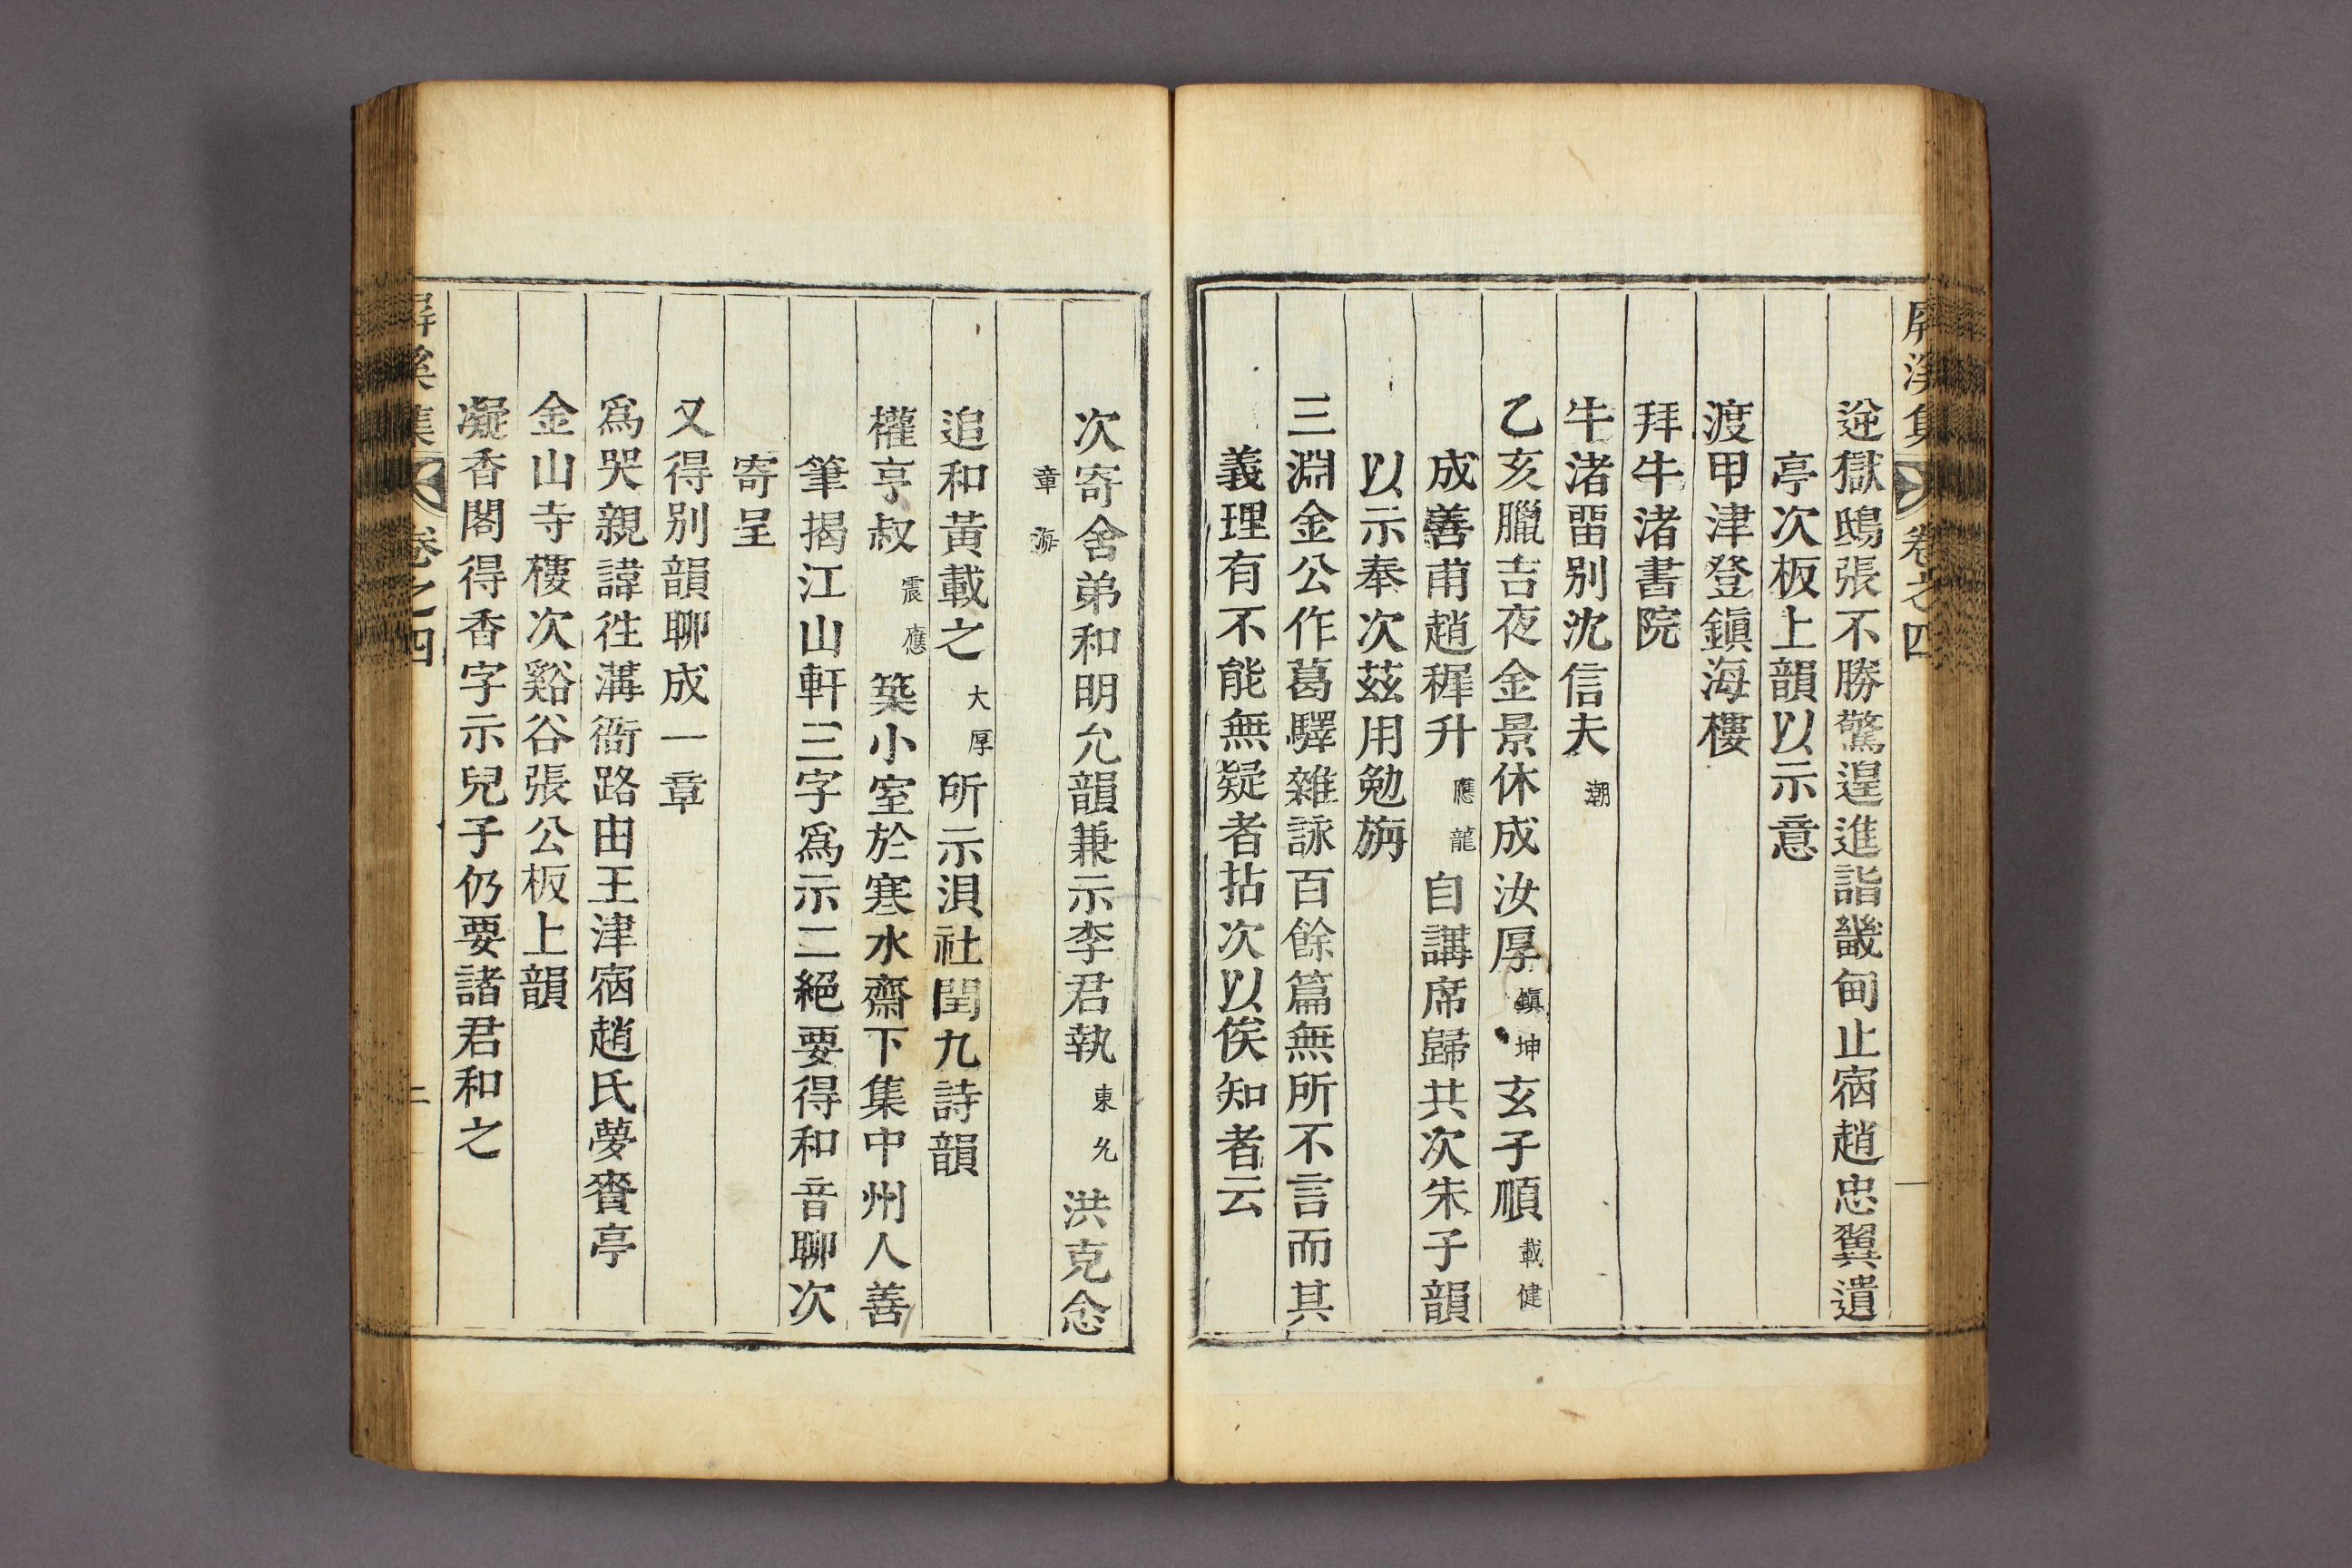 屛溪集 卷之四 一
逆獄鴟張不勝驚遑進詣畿甸止宿趙忠翼遺
亭次板上韻以示意
渡甲津登鎭海樓
拜牛渚書院
牛渚留別沈信夫潮
乙亥臘吉夜金景休成汝厚鎭坤玄子順載健
成善甫趙穉升應龍自講席歸共次朱子韻
以示奉次玆用勉旃
三淵金公作葛驛雜詠百餘篇無所不言而其
義理有不能無疑者拈次以俟知者云
次寄舍弟和明允韻兼示李君執東允洪克念
章海
追和黃載之大厚所示浿社閏九詩韻
權亨叔震應築小室於寒水齋下集中州人善
筆揭江山軒三字爲示二絕要得和音聊次
寄呈
又得別韻聊成一章
爲哭親諱徃溝衙路由王津宿趙氏夢賚亭
金山寺樓次谿谷張公板上韻
凝香閣得香字示兒子仍要諸君和之
屛溪集 卷之四 二